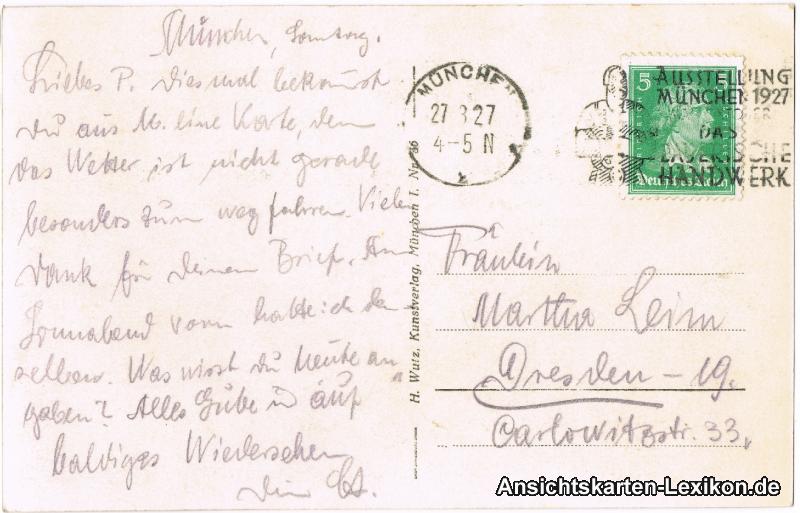 München, Sonntag.
Liebes P. Diesmal bekommst
Du aus M. eine Karte, denn
das Wetter ist nicht gerade
besonders zum weg fahren. Vielen
Dank für deinen Brief. Am
Sonnabend vorm hatte ich den-
selben. Was wirst du heute an-
geben? Alles Gute u auf
baldiges Wiedersehen
Dein
H. Wutz, Kunstverlag, München I. Nr.
MÜNCHEN
27 3 27
4-5 N
5
Deutsches Reich
AUSSTELLUNG
MÜNCHEN 1927
DAS
BAYERISCHE
HANDWERK
Fräulein
Martha Leim
Dresden - 19.
Carlowitzstr. 33.
Ansichtskarten-Lexikon.de